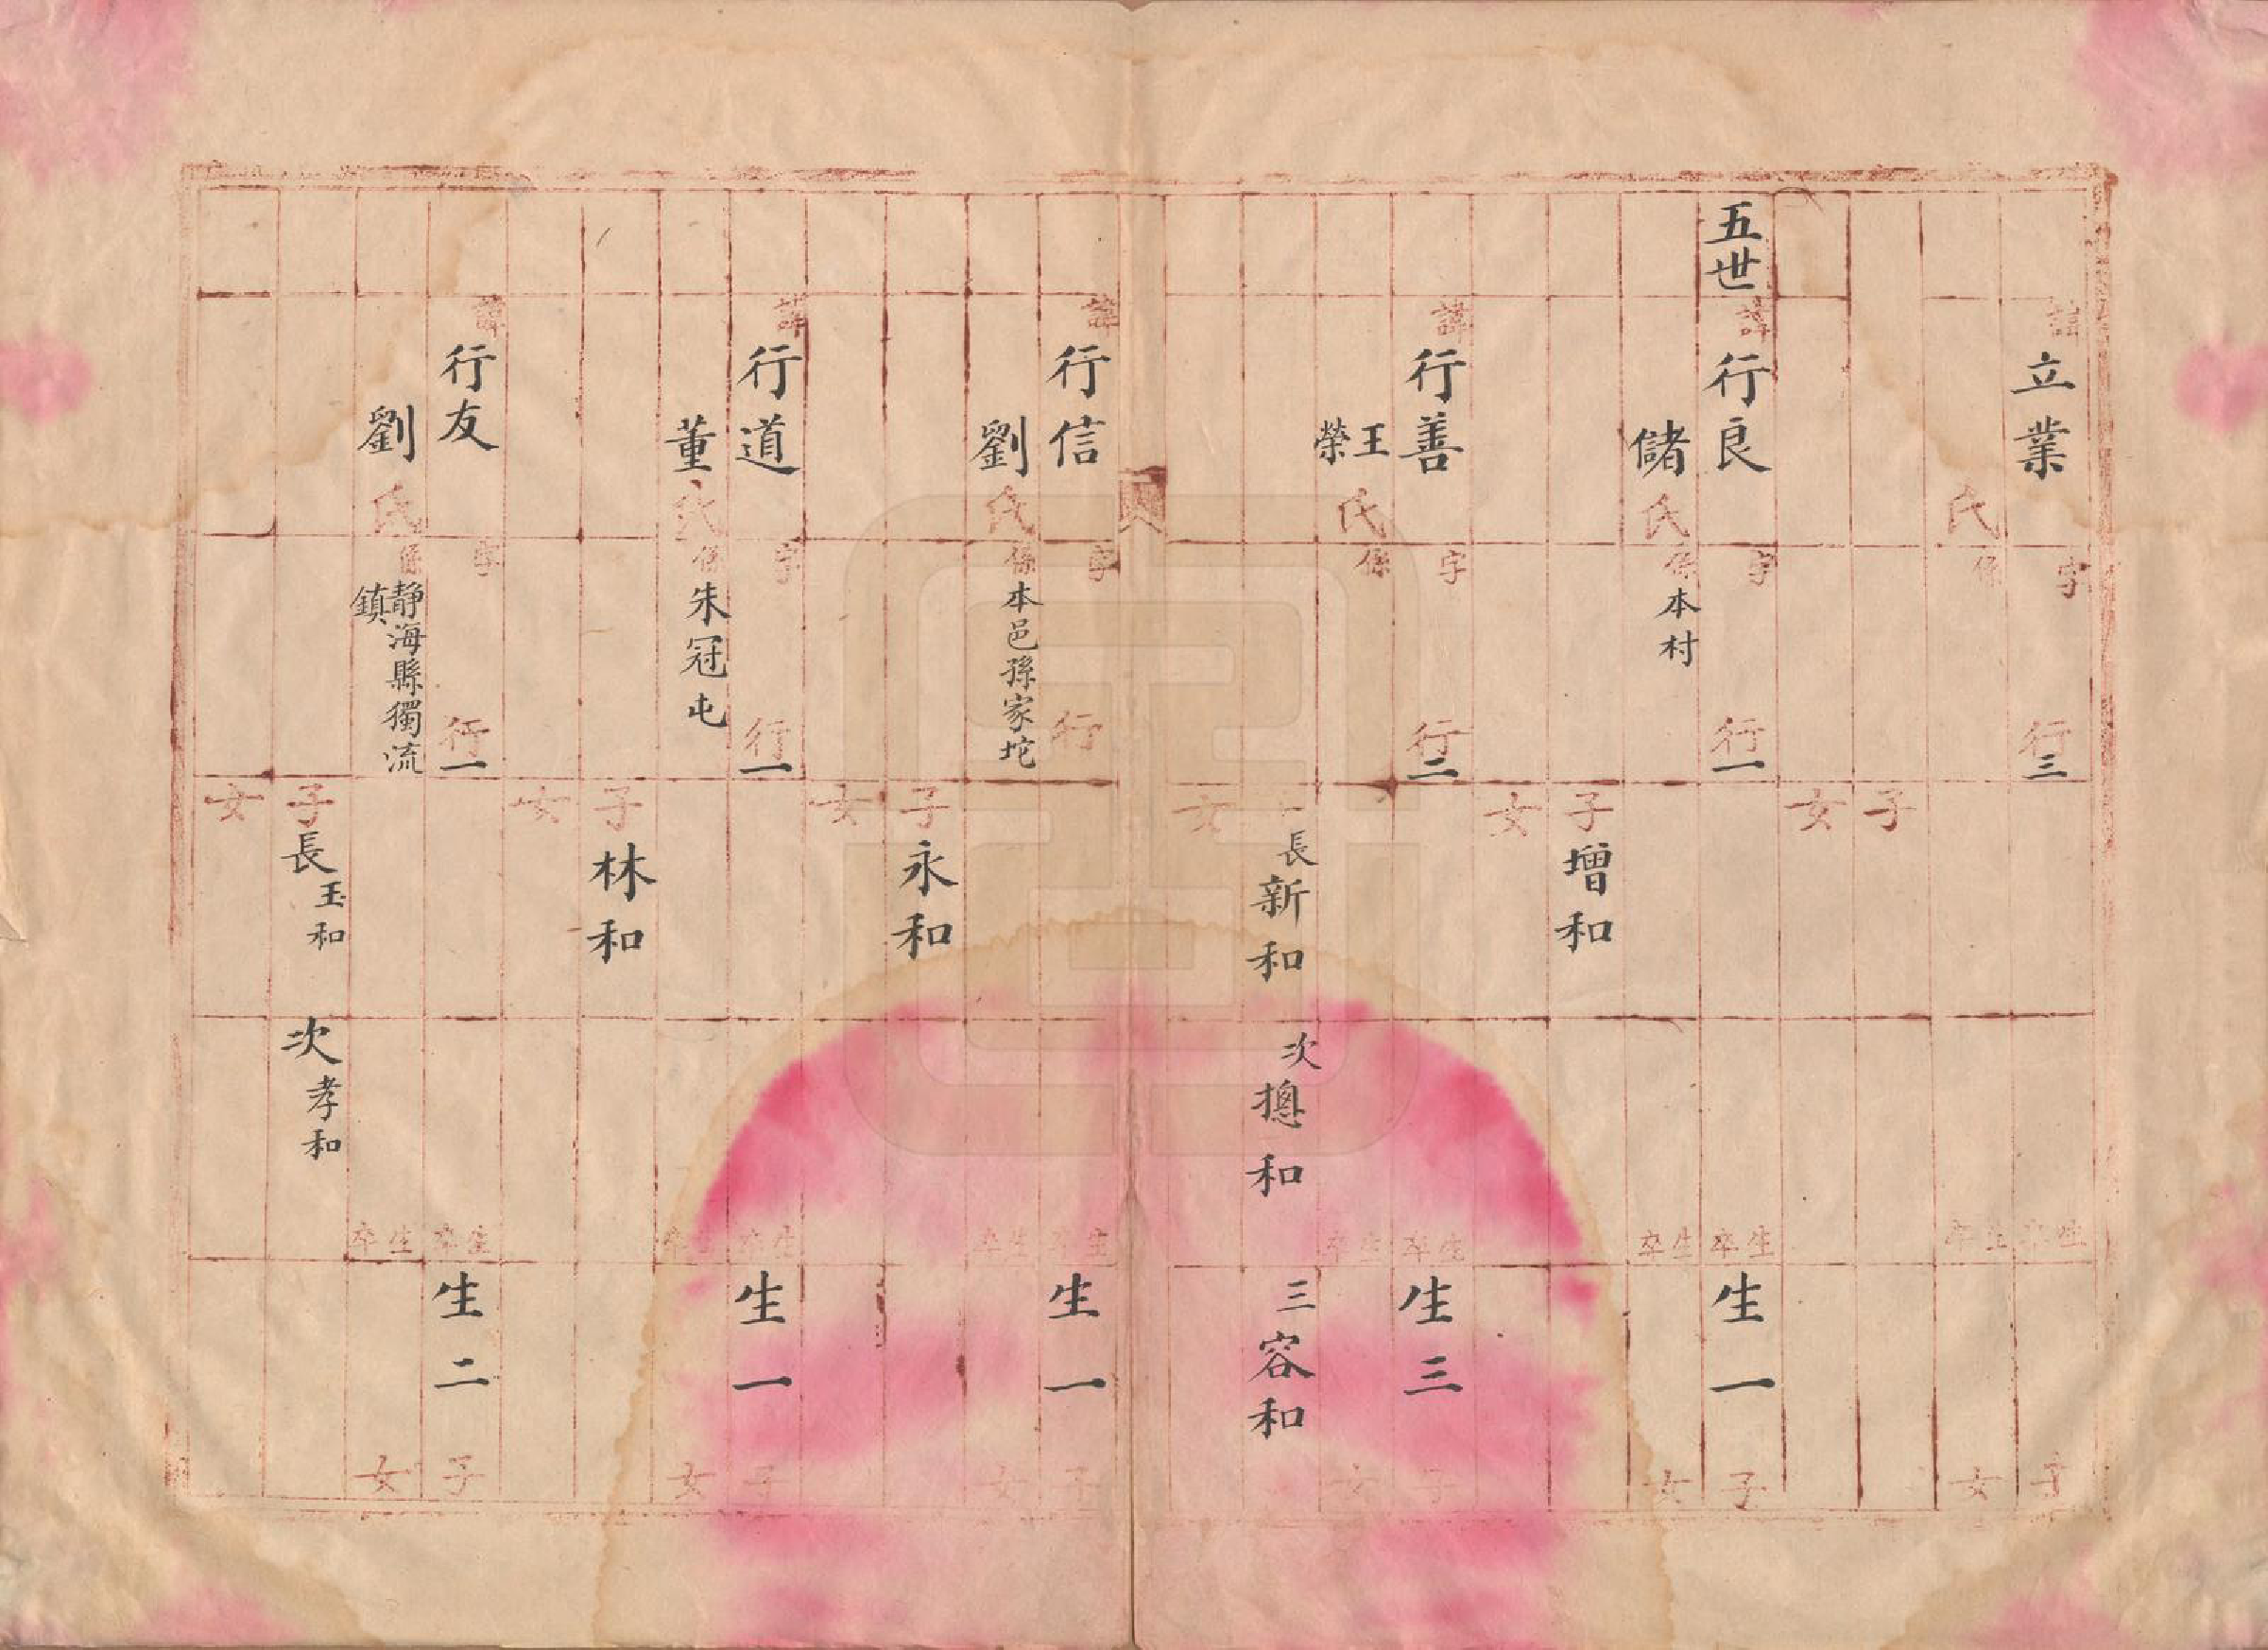 諱 立業
字
行三
生 卒
子
氏
係
生 卒
女
子
女
五世
諱 行良
字
行一
生 卒
生一
子
儲氏
係 本村
生 卒
女
子 增和
女
諱 行善
字
行二
生 卒
生三
子
王 榮 氏
係
生 卒
女
長 新和
次 摠和
三 容和
女
頁
諱 行信
字
行
生 卒
生一
子
劉氏
係 本邑孫家坨
生 卒
女
子 永和
女
諱 行道
字
行一
生 卒
生一
子
董氏
係 朱冠屯
生 卒
女
子 林和
女
諱 行友
字
行一
生 卒
生二
子
劉氏
係 静海縣獨流
鎮
生 卒
女
子 長 玉和
次 孝和
女